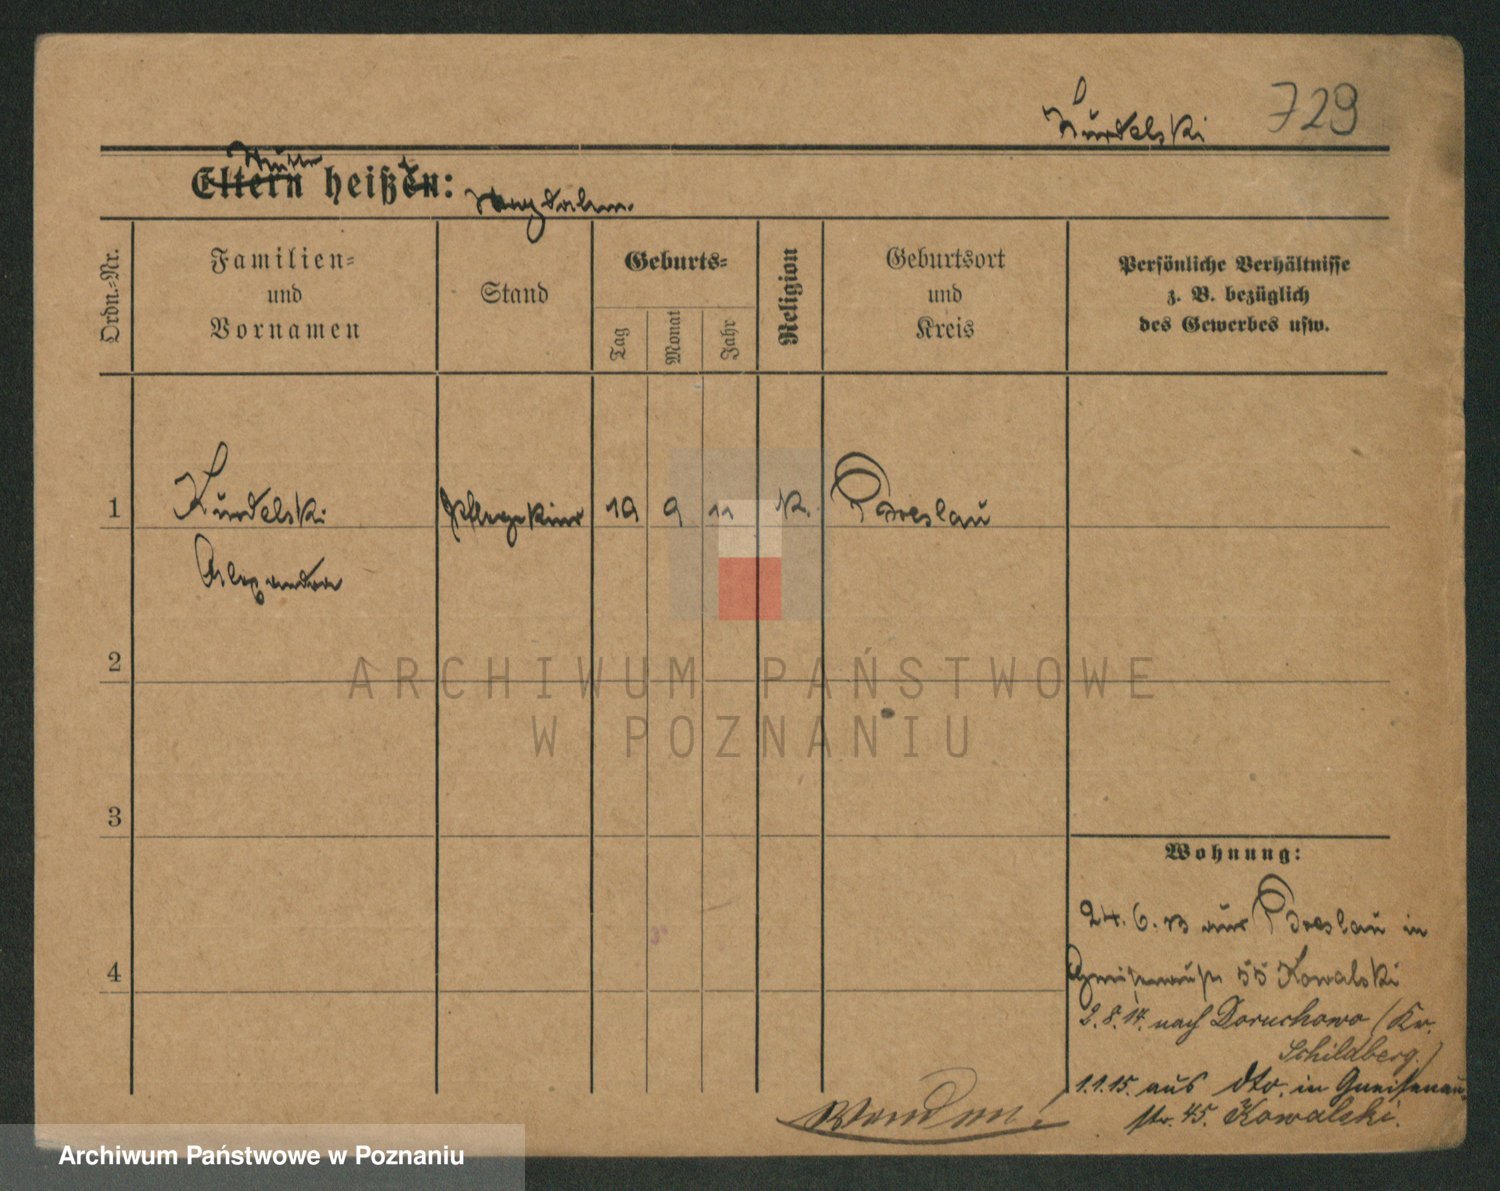 729
Kurdelski
Mutter
Eltern heißen:
Magdalena
Ordn.-Nr.
Familien-
und
Vornamen
Stand
Geburts-
Tag
Monat
Jahr
Religion
Geburtsort
und
Kreis
Persönliche Verhältnisse
z. B. bezüglich
des Gewerbes usw.
1
Kurdelski
Pflegekind
19
9
11
K.
Breslau
Alexandra
2
3
4
Wohnung:
24. 6. 13 aus Breslau in
Gneisenaustr 55 Kowalski
2. 8. 14. nach Doruchowo (Kr.
Schildberg.)
1.1.15. aus dto. in Gneisenau
str. 45. Kowalski.
Wenden!
ARCHIWUM PAŃSTWOWE
W POZNANIU
Archiwum Państwowe w Poznaniu